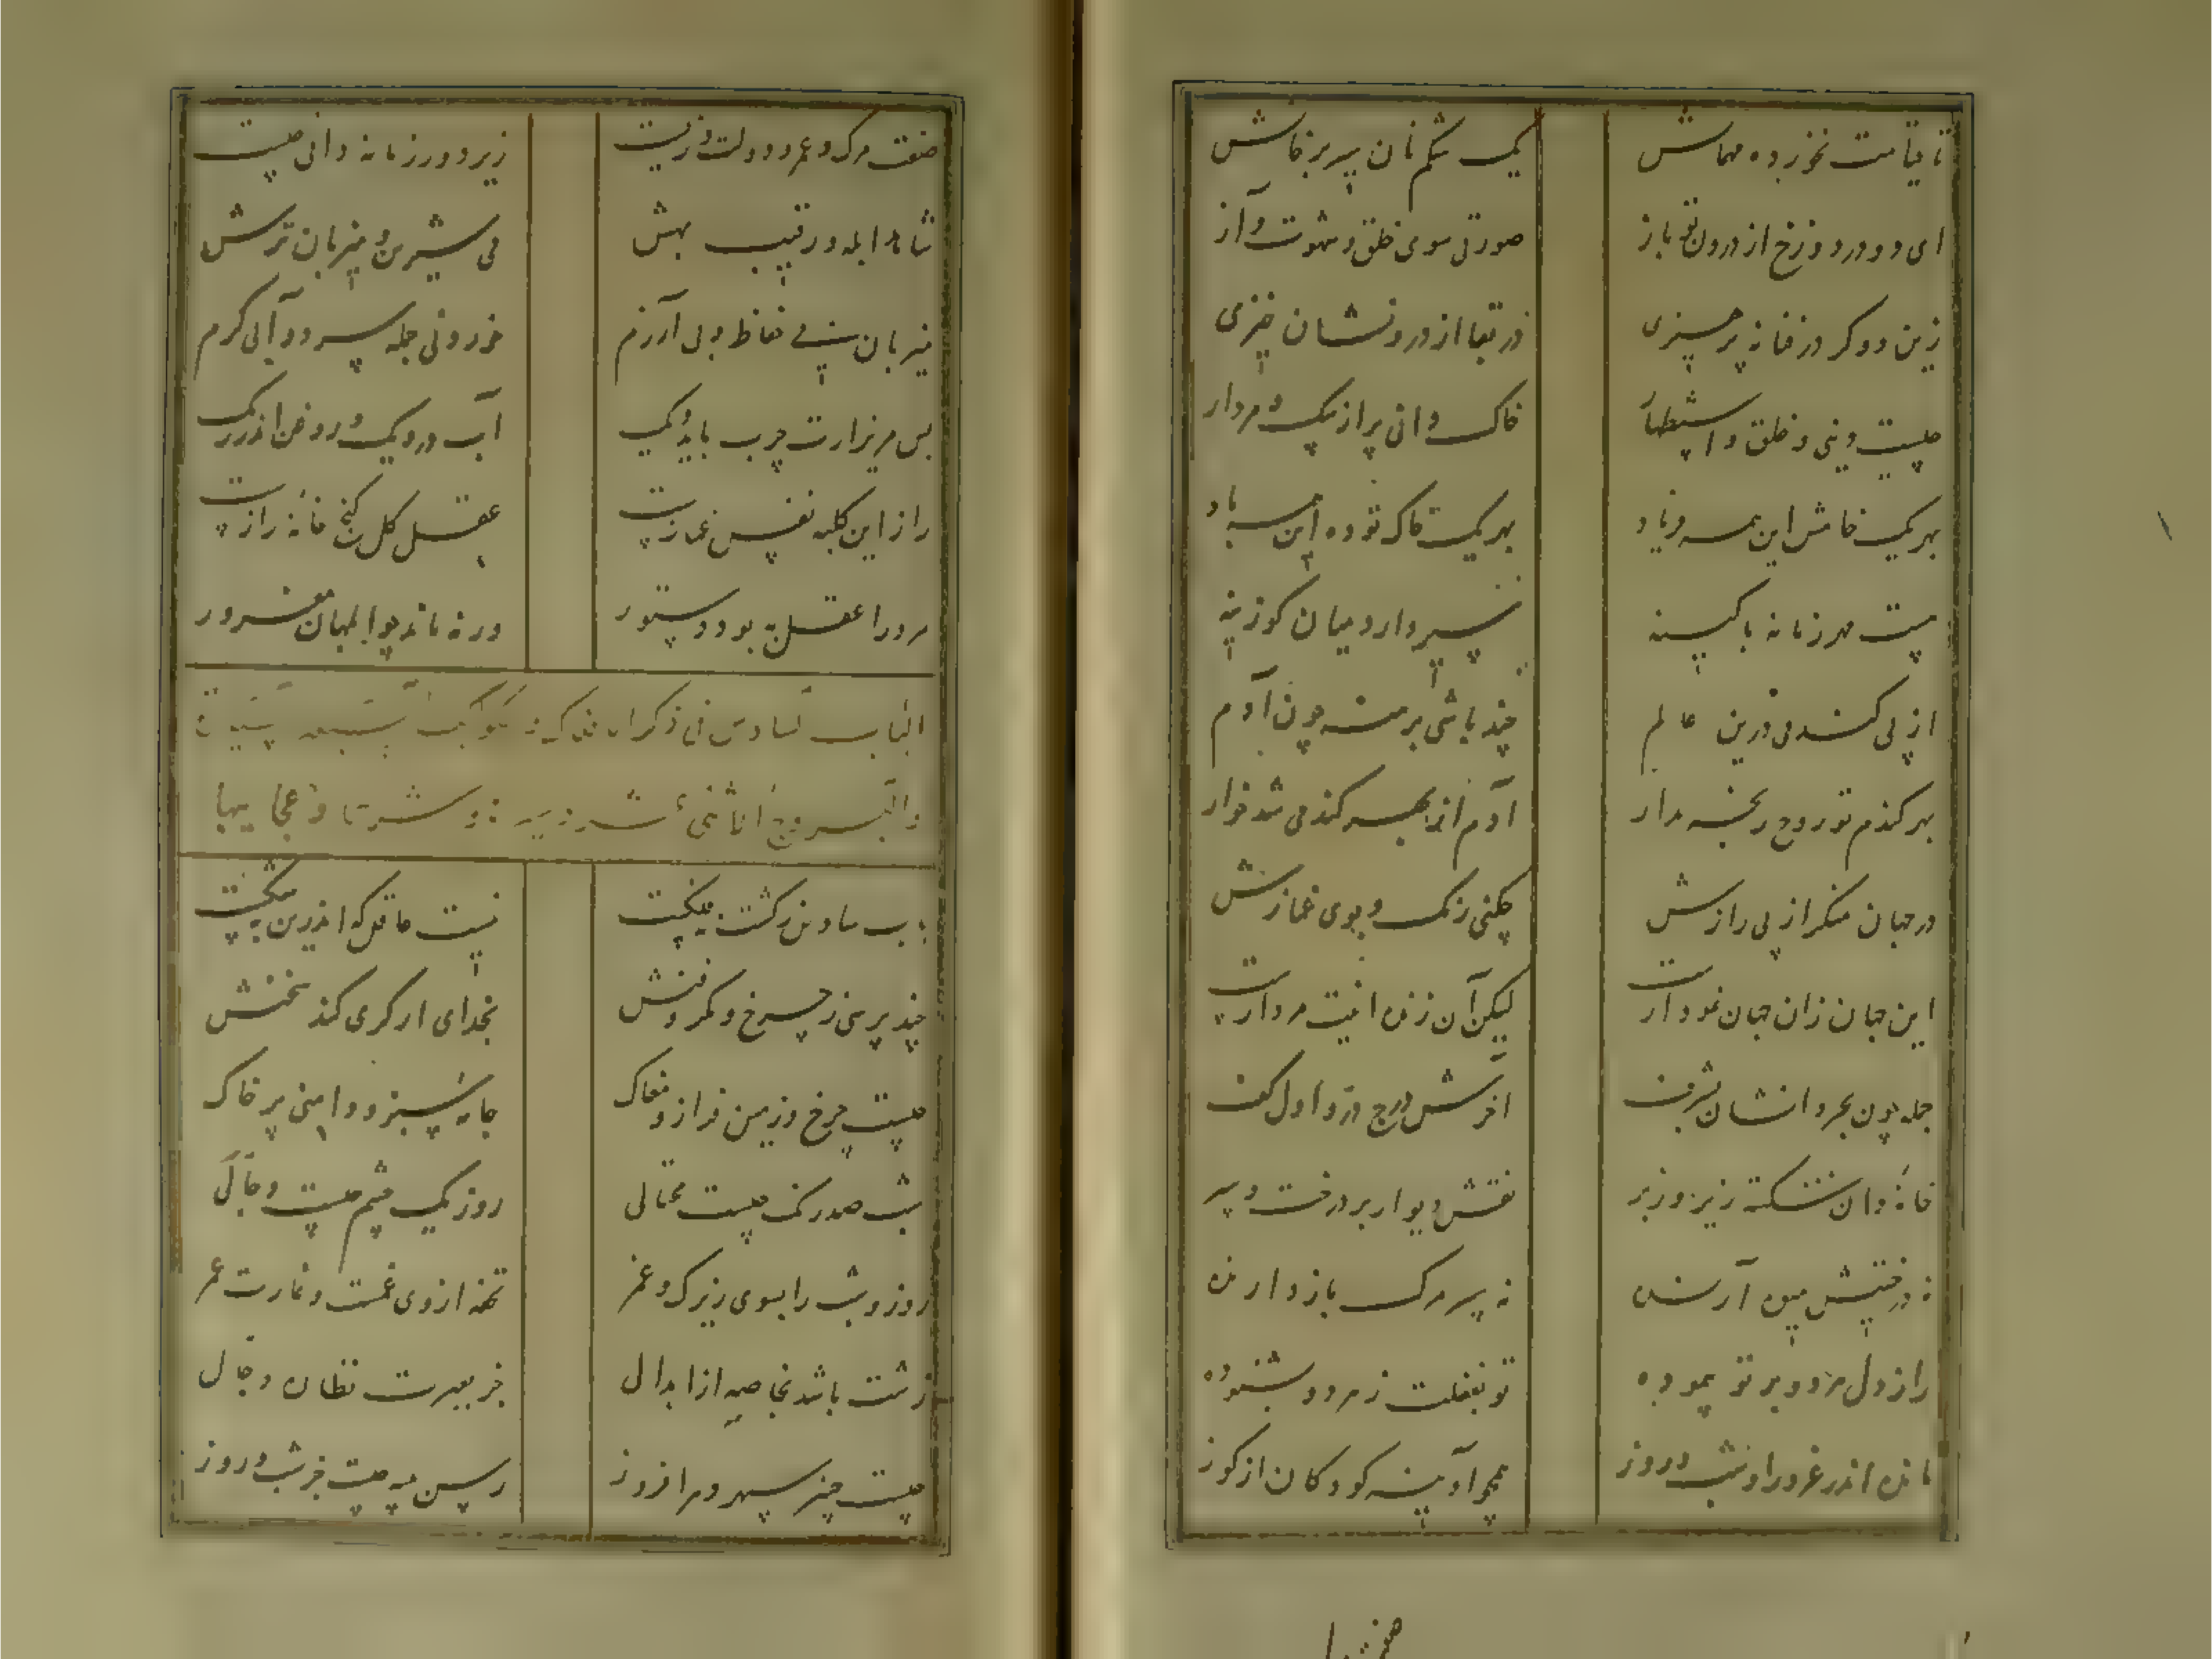 تا قیامت نخورده مهمانش
یک شکم نان سیر بر خوانش
ای دو در دوزخ از درون تو باز
صورتی سوی خلق و شهوت و آز
زین دو گر در فنا نه پرهیزی
در بقا از درونشان خیزی
چیست دنیی و خلق و استظهار
خاک دانی پر از سگ و مردار
بهر یک خامش این همه فریاد
بهر یک خاک توده این همه باد
هست مهر زمانه با کینه
سیر دارد میان گوزینه
از پی گندمی درین عالم
چند باشی برهنه چون آدم
بهر گندم تو روح رنجه مدار
آدم از بهر گندمی شد خوار
در جهان منگر از پی رازش
چکنی رنگ و بوی غمازش
این جهان زان جهان نمودارست
لیکن آن زنده اینت مردارست
جمله چون بحر و
آخرش در و اول کف
خانه دان شکسته زیر و زبر
نقش دیوار بر درخت و
نه درختیش میوه آرنده
نه مرگ باز دارنده
راز دل مرد و بر تو پیموده
تو بغفلت ز مرد و بشنوده
مانده اندر غرور او شب و روز
همچو آدینه کودکان از گوز
صفت مرگ و عمر و دولت و زیست
زیر دور زمانه دانی چیست
شاهد ابله و رقیب بهش
می شیرین و میزبان ترش
میزبان بی حفاظ و بی آزرم
خوردنی جمله سرد و آبی گرم
بس مریزارت چرب باید دیگ
آب در دیگ و روغن اندر ریگ
راز این کلبه نفس غمازست
عقل کل گنج خانه رازست
مرد را عقل به بود دستور
ورنه ماند چو ابلهان مغرور
الباب السادس فی ذکر
والبروج الاثنی عشر
باب سادس ز گشت
نیست عاقل که اندرین
چند پرسی ز چرخ و مکر و فنش
بخدای ار کری کند سخنش
چیست چرخ و زمین فراز و مغاک
جامه سبز و دامنی پر خاک
شب صد رنگ چیست محتالی
روز یک چشم چیست دجالی
روز و شب را بسوی زیرک و غمر
تحفه از وی غمست و غارت عمر
زشت باشد بخاصه از ابدال
خر بصیرت نظاره دجال
چیست چنبر سپهر و مهر افروز
رسن چه چیست جز شب و روز